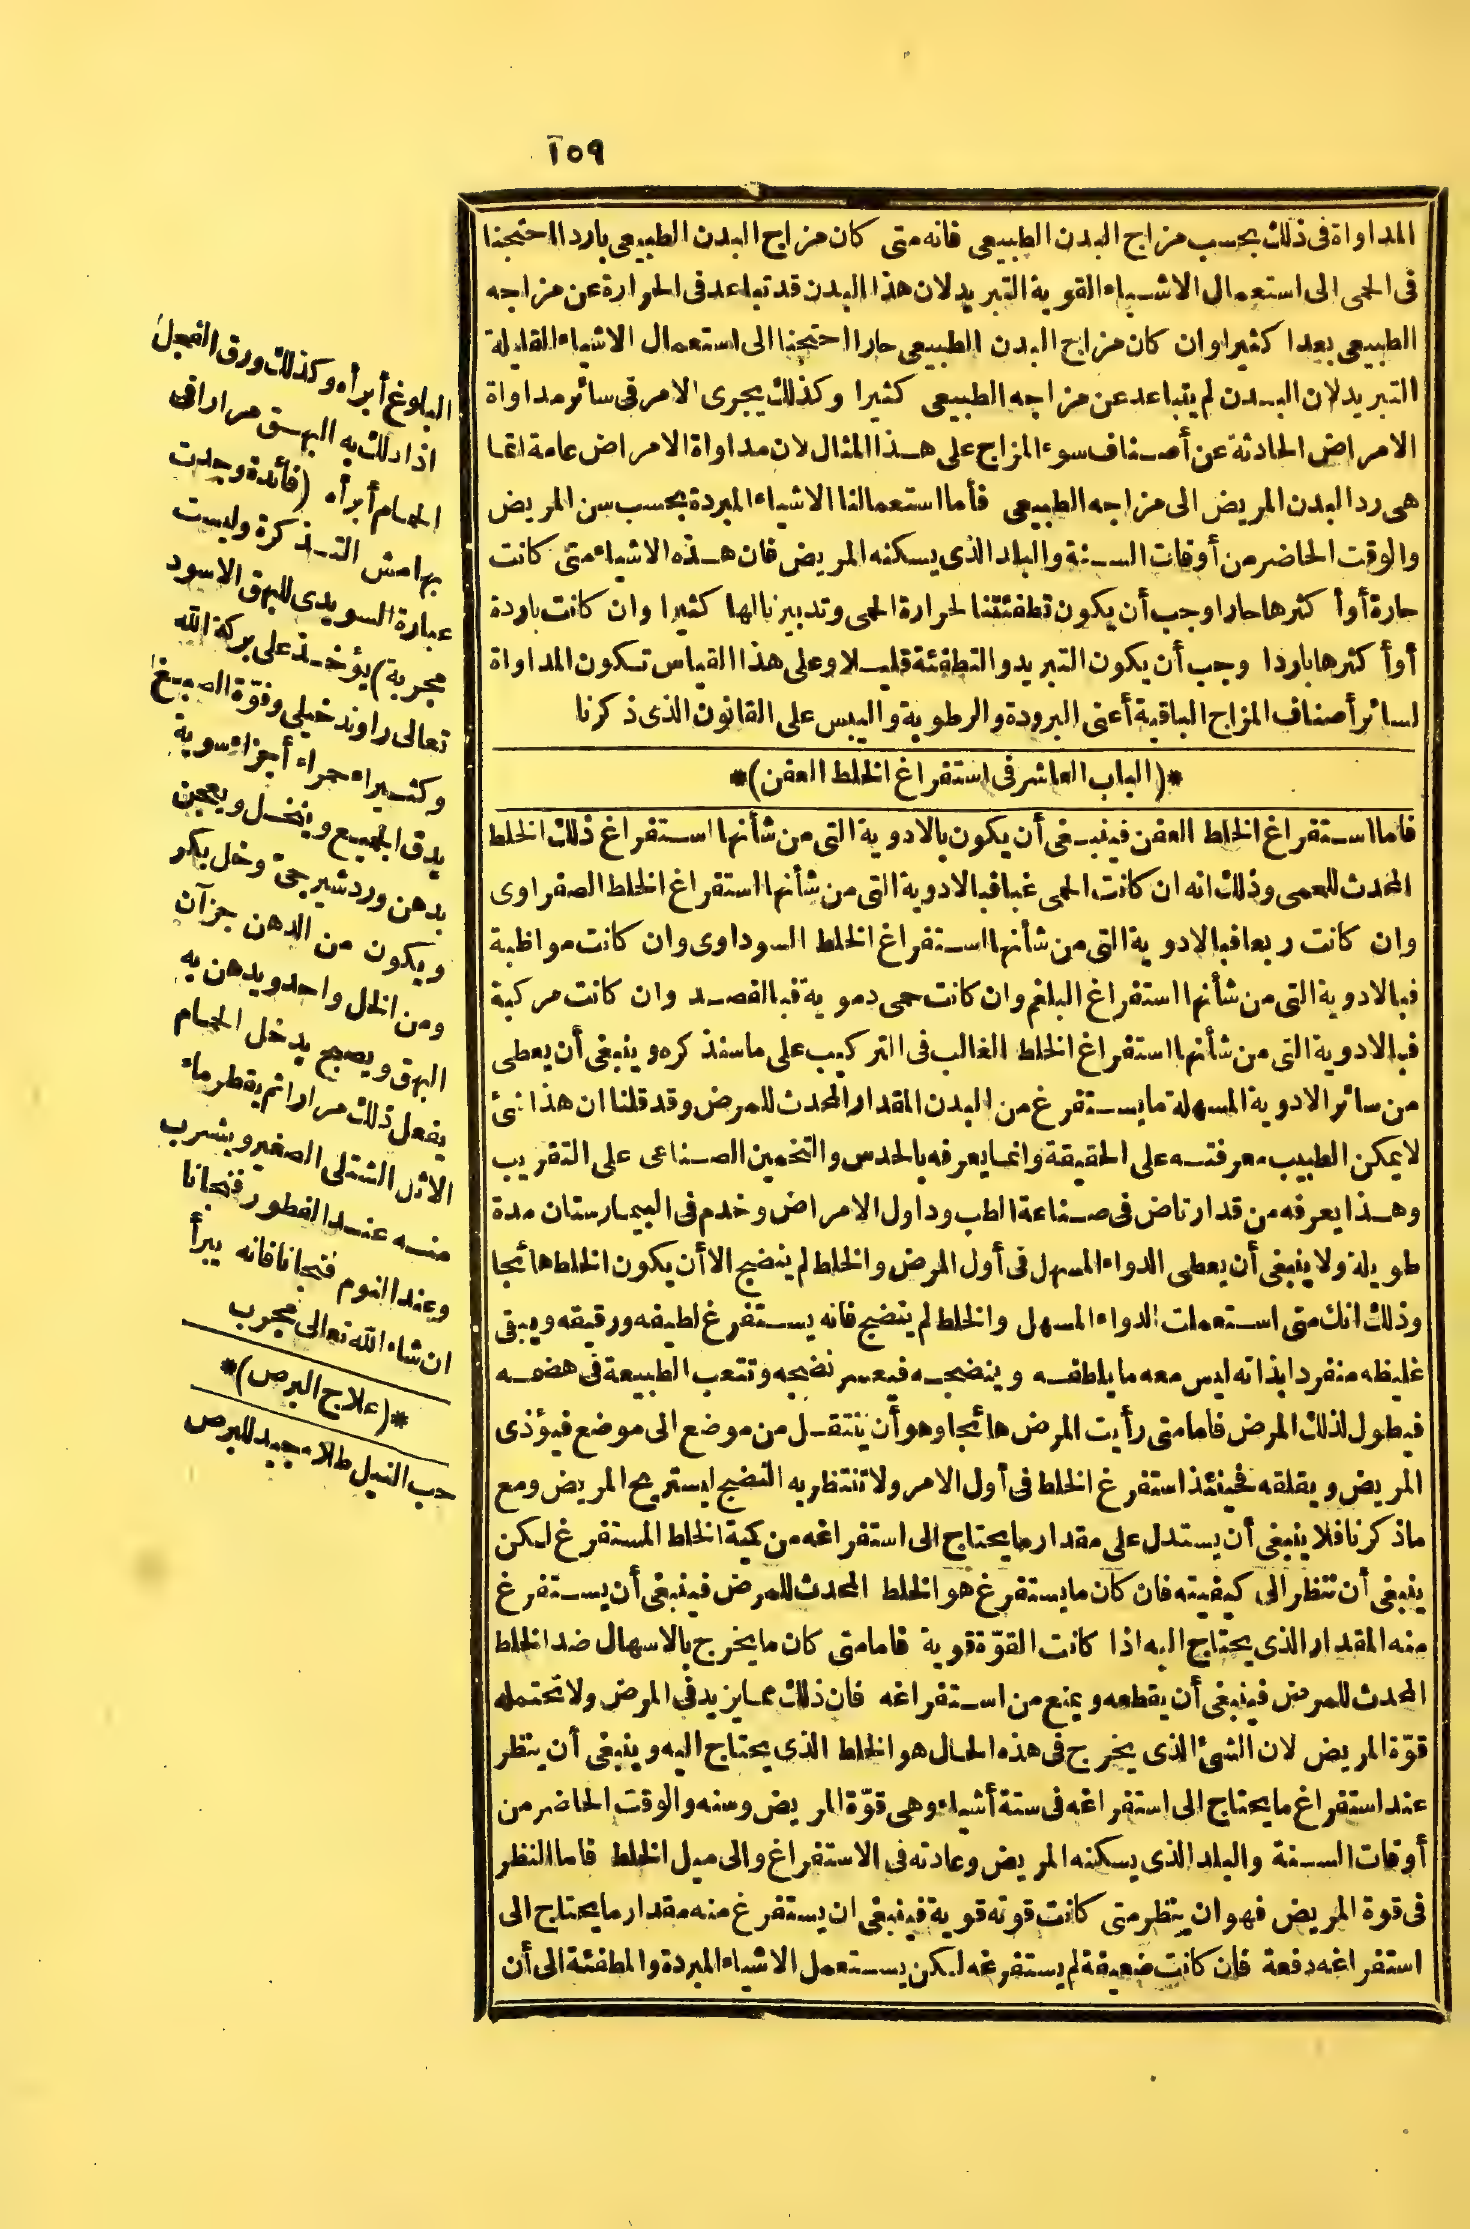 ١٥٩
المداواة فى ذلك بحسب مزاج البدن الطبيعى فانه متى كان مزاج البدن الطبيعى باردا احتجنا
فى الحمى الى استعمال الاشياء القوية التبريد لان هذا البدن قد تباعد فى الحرارة عن مزاجه
الطبيعى بعدا كثيرا وان كان مزاج البدن الطبيعى حارا احتجنا الى استعمال الاشياء القليلة
التبريد لان البدن لم يتباعد عن مزاجه الطبيعى كثيرا وكذلك يجرى الامر فى سائر مداواة
الامراض الحادثة عن أصناف سوء المزاج على هذا المثال لان مداواة الامراض عامة انما
هى رد البدن المريض الى مزاجه الطبيعى فأما استعمالنا الاشياء المبردة بحسب سن المريض
والوقت الحاضر من أوقات السنة والبلد الذى يسكنه المريض فان هذه الاشياء متى كانت
حارة أوأكثرها حارا وجب أن يكون تطفئتنا لحرارة الحمى وتدبيرنا لها كثيرا وان كانت باردة
أوأكثرها باردا وجب أن يكون التبريد والتطفئة قليلا وعلى هذا القياس تكون المداواة
لسائر أصناف المزاج الباقية أعنى البرودة والرطوبة واليبس على القانون الذى ذكرنا
*(الباب العاشر فى استفراغ الخلط العفن)*
فاما استفراغ الخلط العفن فينبغى أن يكون بالادوية التى من شأنها استفراغ ذلك الخلط
المحدث للحمى وذلك انه ان كانت الحمى غبا فبالادوية التى من شأنها استفراغ الخلط الصفراوى
وان كانت ربعا فبالادوية التى من شأنها استفراغ الخلط السوداوى وان كانت مواظبة
فبالادوية التى من شأنها استفراغ البلغم وان كانت حمى دموية فبالفصد وان كانت مركبة
فبالادوية التى من شأنها استفراغ الخلط الغالب فى التركيب على ماسنذكره وينبغى أن يعطى
من سائر الادوية المسهلة ما يستفرغ من البدن المقدار المحدث للمرض وقد قلنا ان هذا شئ
لا يمكن الطبيب معرفته على الحقيقة وانما يعرفه بالحدس والتخمين الصناعى على التقريب
وهذا يعرفه من قد ارتاض فى صناعة الطب وداول الامراض وخدم فى البيمارستان مدة
طويلة ولا ينبغى أن يعطى الدواء المسهل فى أول المرض والخلط لم ينضج الا أن يكون الخلط هائجا
وذلك انك متى استعملت الدواء المسهل والخلط لم ينضج فانه يستفرغ لطيفه ورقيقه ويبقى
غليظه منفردا بذاته ليس معه ما يلطفه وينضجه فيعسر نضجه وتتعب الطبيعة فى هضمه
فيطول لذلك المرض فاما متى رأيت المرض هائجا وهو أن ينتقل من موضع الى موضع فيؤذى
المريض ويقلقه فحينئذ استفرغ الخلط فى أول الامر ولا تنتظر به النضج ليستريح المريض ومع
ماذكرنا فلا ينبغى أن يستدل على مقدار ما يحتاج الى استفراغه من كمية الخلط المستفرغ لكن
ينبغى أن تنظر الى كيفيته فان كان ما يستفرغ هو الخلط المحدث للمرض فينبغى أن يستفرغ
منه المقدار الذى يحتاج اليه اذا كانت القوّة قوية فاما متى كان ما يخرج بالاسهال ضد الخلط
المحدث للمرض فينبغى أن يقطعه ويمنع من استفراغه فان ذلك مما يزيد فى المرض ولا تحتمله
قوّة المريض لان الشئ الذى يخرج فى هذه الحال هو الخلط الذى يحتاج اليه وينبغى أن ينظر
عند استفراغ ما يحتاج الى استفراغه فى ستة أشياء وهى قوّة المريض وسنه والوقت الحاضر من
أوقات السنة والبلد الذى يسكنه المريض وعادته فى الاستفراغ والى ميل الخلط فاما النظر
فى قوة المريض فهو ان ينظر متى كانت قوته قوية فينبغى ان يستفرغ منه مقدار ما يحتاج الى
استفراغه دفعة فان كانت ضعيفة لم يستفرغه لكن يستعمل الاشياء المبردة والمطفئة الى أن
البلوغ أبرأه وكذلك ورق الفجل
اذا دلك به البهق مرارا فى
الحمام أبرأه (فائدة وجدت
بهامش التذكرة وليست
عبارة السويدى للبهق الاسود
مجربة) يؤخذ على بركة الله
تعالى راوند خيلى وفوّة الصبغ
وكثيراء حمراء أجزاء سوية
يدق الجميع وينخل ويعجن
بدهن ورد شيرجىّ وخل بكر
ويكون من الدهن جزآن
ومن الخل واحد ويدهن به
البهق ويصبح يدخل الحمام
يفعل ذلك مرارا ثم يقطر ماء
الاثل الشتلى الصغير ويشرب
منه عند الفطور فنجانا
وعند النوم فنجانا فانه يبرأ
ان شاء الله تعالى مجرب
*(علاج البرص)*
حب النيل طلاء جيد للبرص